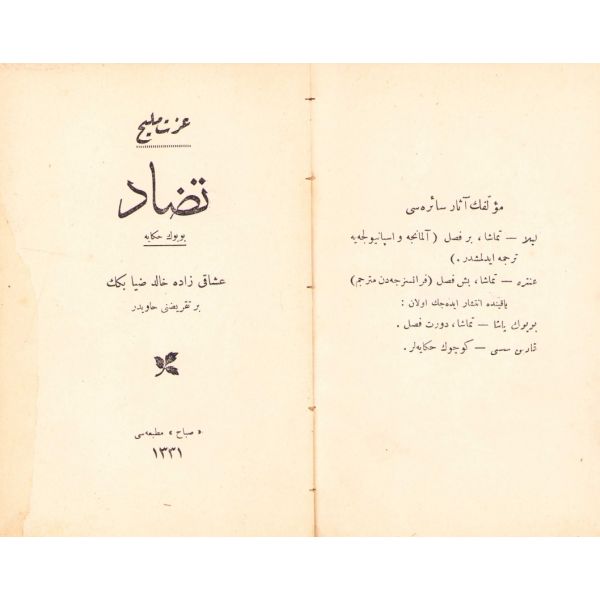 مؤلفك آثار سائره‌سى
ليلا — تماشا، بر فصل (آلمانجه و اسپانيولجه‌يه
ترجمه ايدلمشدر.)
عنتره — تماشا، بش فصل (فرانسزجه‌دن مترجم)
ياقينده انتشار ايده‌جك اولان :
بويوك پاشا — تماشا، دورت فصل .
سسى — كوچوك حكايه‌لر .
عزت مليح
تضاد
بويوك حكايه
عشاقى زاده خالد ضيا بكك
بر تقريضنى حاويدر
« صباح » مطبعه‌سى
١٣٣١